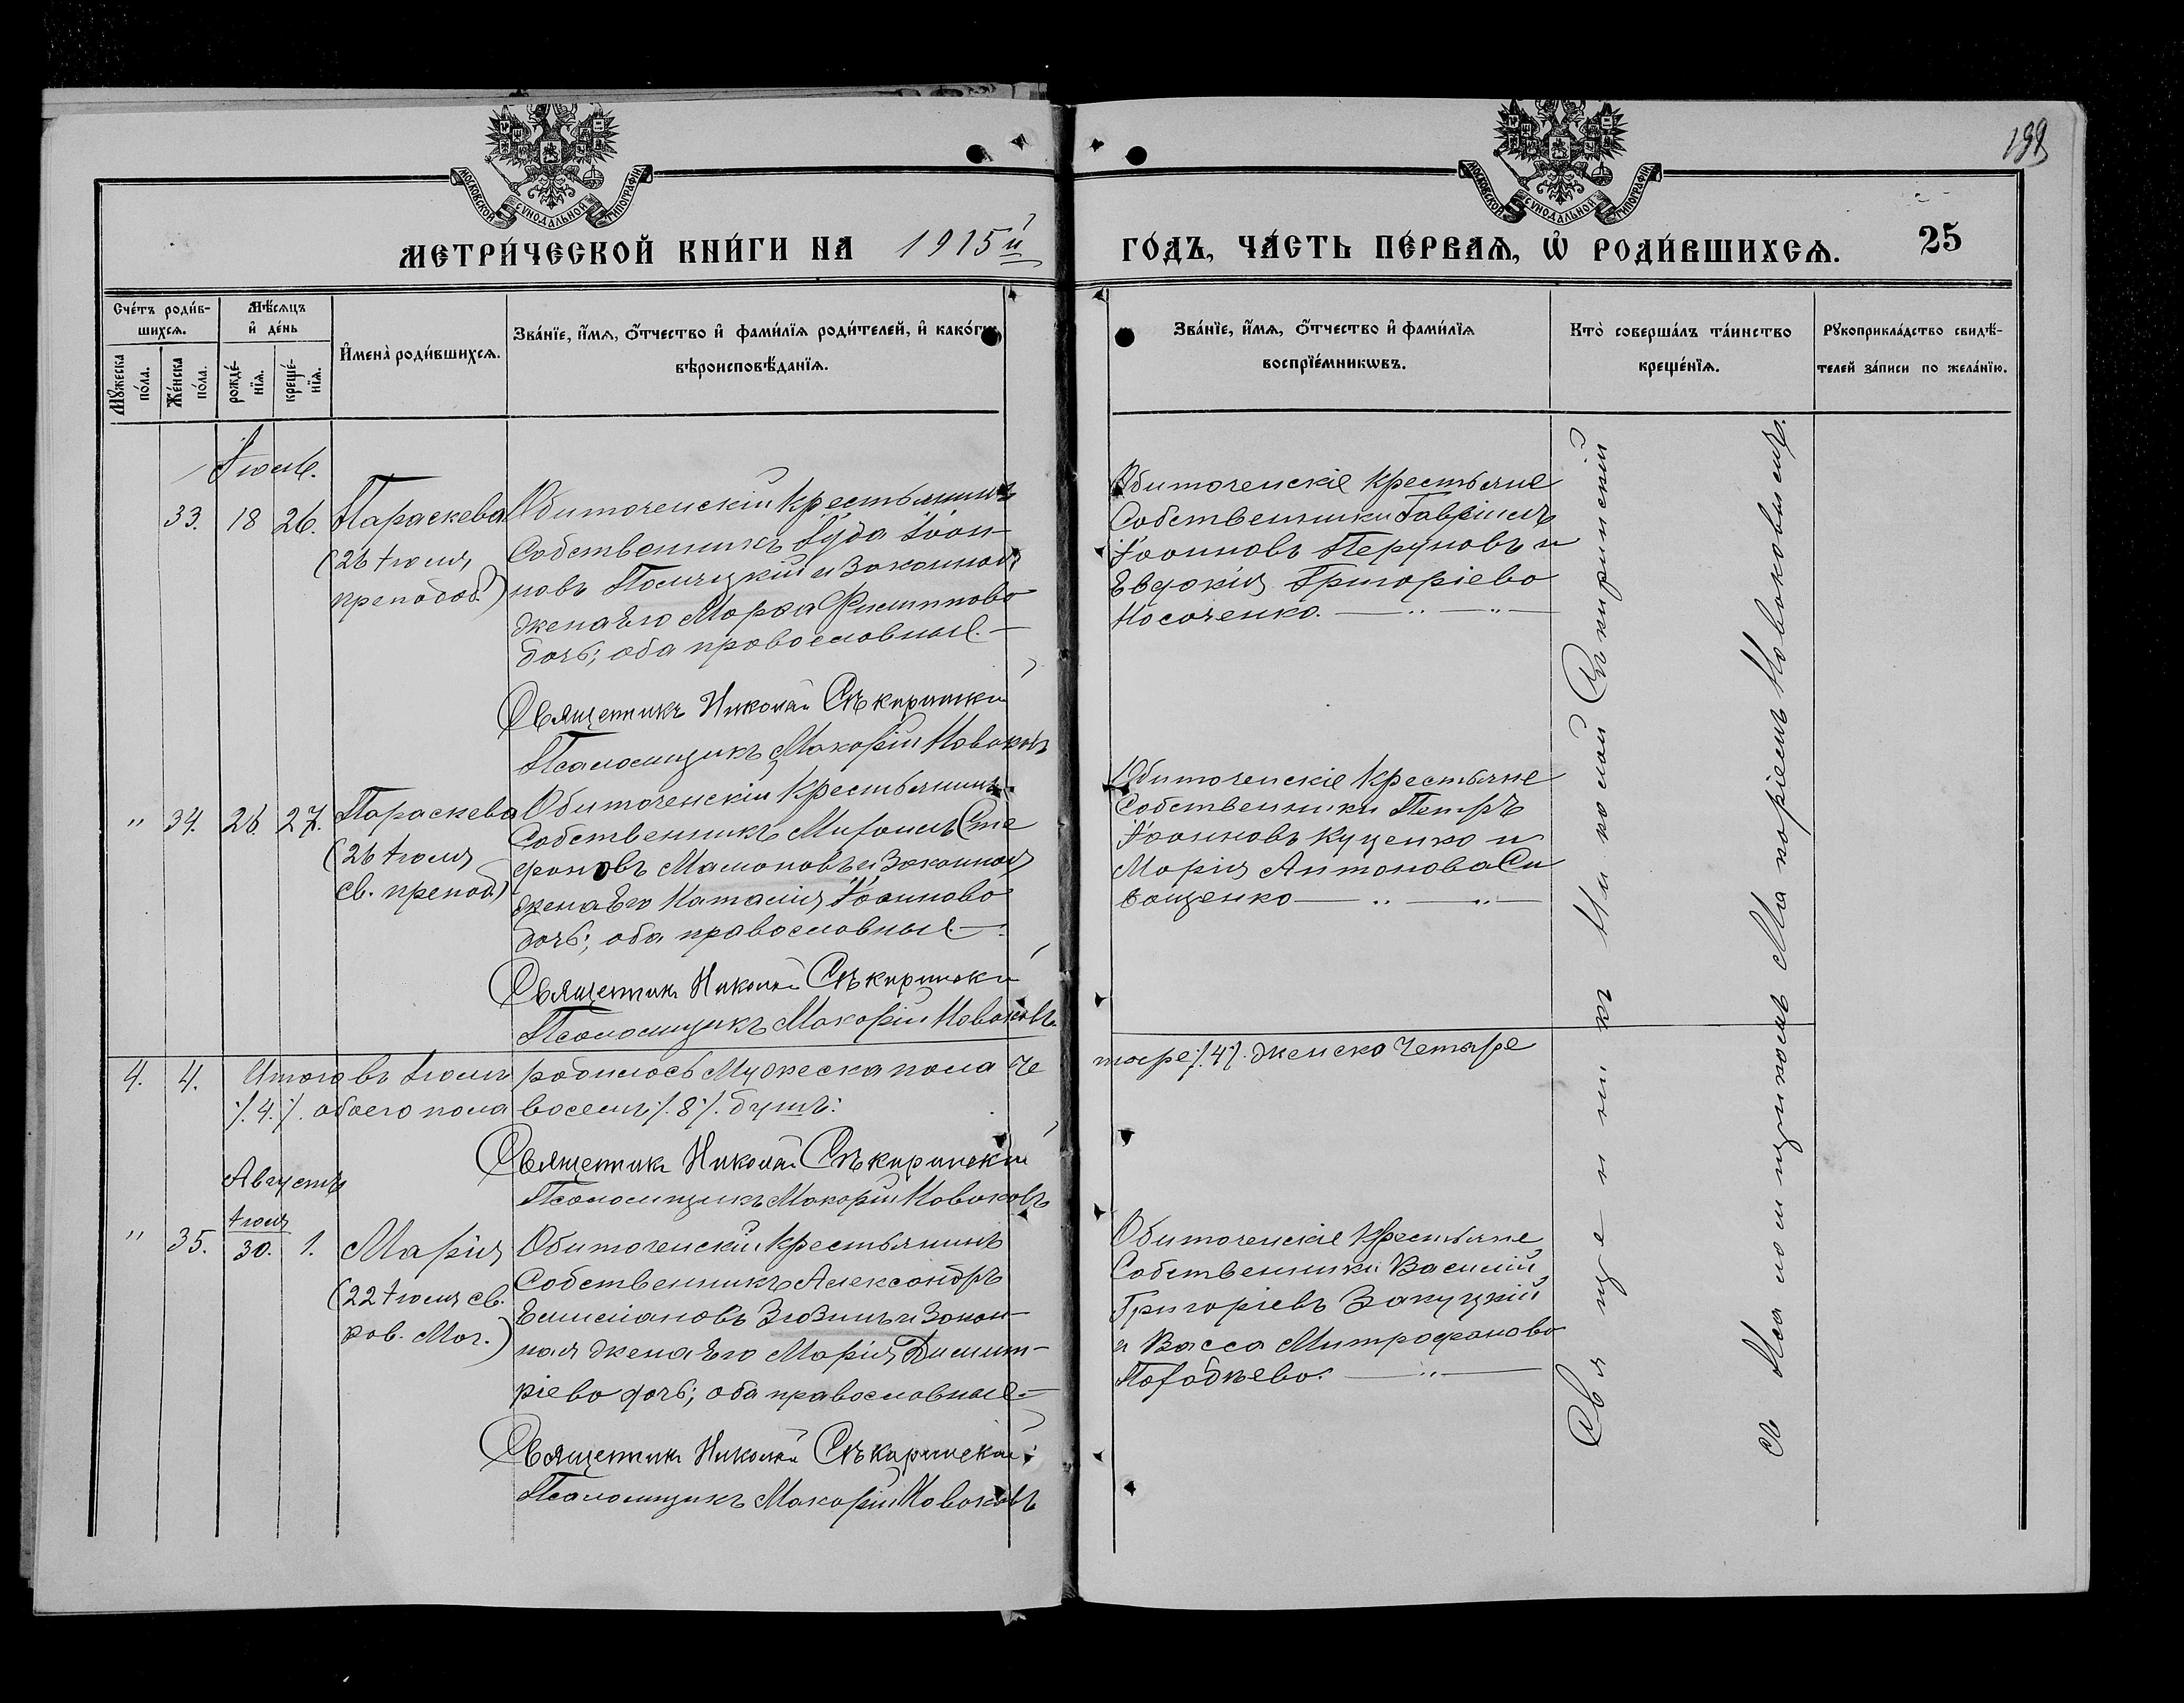 199
МОСКОВСКОЙ СѴНОДАЛЬНОЙ ТИПОГРАФІИ
МОСКОВСКОЙ СѴНОДАЛЬНОЙ ТИПОГРАФІИ
МЕТРИ́ЧЕСКОЙ КНИ́ГИ НА 1915й
ГО́ДЪ, ЧА́СТЬ ПЕ́РВАѦ, Ѡ҆ РОДИ́ВШИХСѦ. 25
Сче́тъ роди́в-
шихсѧ.
Мꙋ́жеска по́ла.
Же́нска по́ла.
Мѣ́сѧцъ
и҆ де́нь
рожде́-
нїѧ.
креще́-
нїѧ.
И҆мена̀ роди́вшихсѧ.
Зва́нїе, и҆́мѧ, ѻ҆́тчество и҆ фами́лїѧ роди́телей, и҆ како́гѡ
вѣроисповѣ́данїѧ.
Зва́нїе, и҆́мѧ, ѻ҆́тчество и҆ фами́лїѧ
воспрїе́мникѡвъ.
Кто̀ соверша́лъ та́инство
креще́нїѧ.
Рꙋкоприкла́дство свидѣ́-
телей за́писи по жела́нїю.
Іюль.
33. 18 26. Параскева
(26 Іюля
преподоб.)
Обиточенскій Крестьянинъ
Собственникъ Іуда Іоан-
новъ и Законная
жена Его Марфа Филиппова
дочь; оба православные.
Священникъ Николай Сѣкиринскій
Псаломщикъ Макарій Новаковъ
Обиточенскіе Крестьяне
Собственники Гавріилъ
Іоанновъ Перуновъ и
Евдокія Григоріева
Носаченко.
" 34. 26. 27. Параскева
(26 Іюля
св. препод.)
Обиточенскій Крестьянинъ
Собственникъ Михаилъ Сте
фановъ Мамоновъ и Законная
жена Его Наталія Іоаннова
дочь; оба православные.
Священникъ Николай Сѣкиринскій
Псаломщикъ Макарій Новаковъ
Обиточенскіе Крестьяне
Собственники Петръ
Іоанновъ Куценко и
Марія Антонова Си
ващенко
4. 4. Итого въ Іюлѣ родилось Мужеска пола че
тыре /.4./. женска Четыре
/.4./. обоего пола восемь /.8./. душъ.
Священникъ Николай Сѣкиринскій
Псаломщикъ Макарій Новаковъ
Августъ
" 35. Іюля 30. 1. Марія
(22 Іюля св.
рав. Маг.)
Обиточенскій Крестьянинъ
Собственникъ Александръ
Емеліановъ Зюзинъ и Закон-
ная жена Его Марія Димит-
ріева дочь; оба православные.
Священникъ Николай Сѣкиринскій
Псаломщикъ Макарій Новаковъ
Обиточенскіе Крестьяне
Собственники Василій
Григоріевъ Закуцкій
и Васса Митрофанова
Священникъ Николай Сѣкиринскій
съ Псаломщикомъ Макаріемъ Новаковымъ.